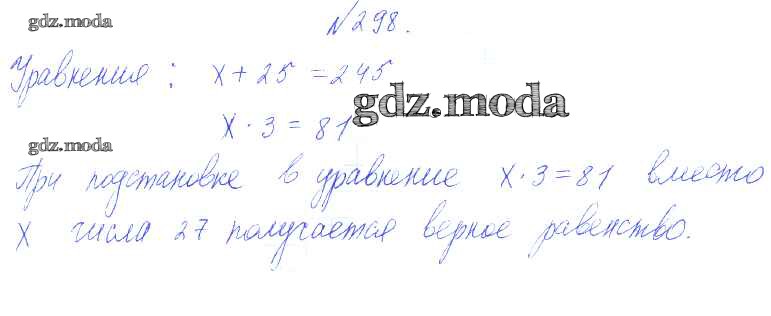 gdz.moda
№298.
Уравнения: x + 25 = 245
gdz.moda
x · 3 = 81
gdz.moda
При подстановке в уравнение x · 3 = 81 вместо
x числа 27 получается верное равенство.